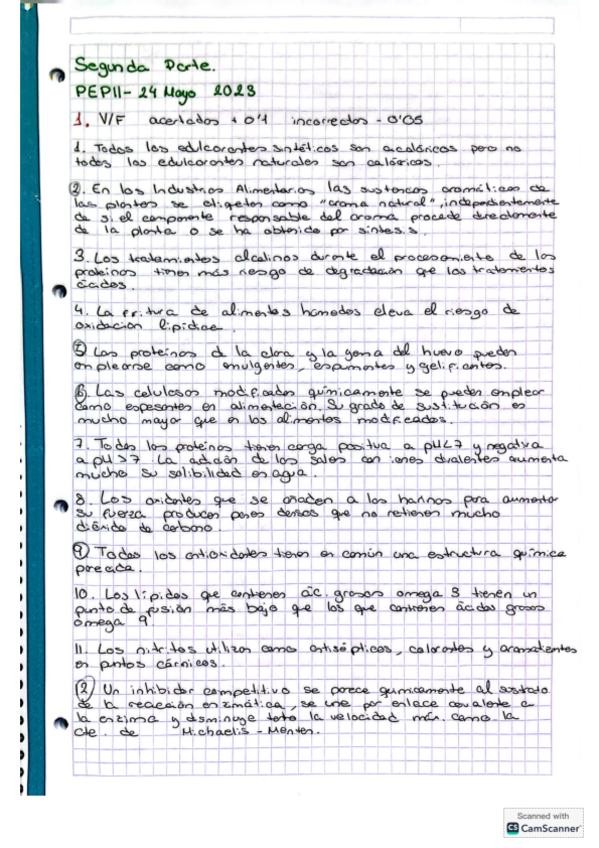 Segunda Parte.
PEP11- 24 Mayo 2023
1. V/F acertados + 0'1 incorrectos - 0'05
1. Todos los edulcorantes sintéticos son acalóricos pero no
todos los edulcorantes naturales son calóricos.
2. En las Industrias Alimentarias las sustancias aromáticas de
las plantas se etiquetan como "aroma natural", independientemente
de si el componente responsable del aroma procede directamente
de la planta o se ha obtenido por síntesis.
3. Los tratamientos alcalinos durante el procesamiento de las
proteínas tienen más riesgo de degradación que los tratamientos
ácidos.
4. La fritura de alimentos húmedos eleva el riesgo de
oxidación lipídica.
5. Las proteínas d la clara y la yema del huevo pueden
emplearse como emulgentes, espumantes y gelificantes.
6. Las celulosas modificadas químicamente se pueden emplear
como espesantes en alimentación. Su grado de sustitución es
mucho mayor que en los alimentos modificados.
7. Todas las proteínas tienen carga positiva a pH<7 y negativa
a pH>7. La adición de las sales con iones divalentes aumenta
mucho su solibilidad en agua.
8. Los oxidantes que se añaden a las harinas para aumentar
su fuerza producen panes densos que no retienen mucho
dióxido de carbono.
9. Todos los antioxidantes tienen en común una estructura química
parecida.
10. Los lípidos que contienen ác. grasos omega 3 tienen un
punto de fusión más bajo que los que contienen ácidos grasos
omega 9
11. Los nitritos utilizan como antisépticos, colorantes y aromatizantes
en puntos cárnicos.
12. Un inhibidor competitivo se parece químicamente al sustrato
de la reacción enzimática, se une por enlace covalente a
la enzima y disminuye tanto la velocidad máx. como la
cte. de Michaelis - Menten.
Scanned with
CS CamScanner